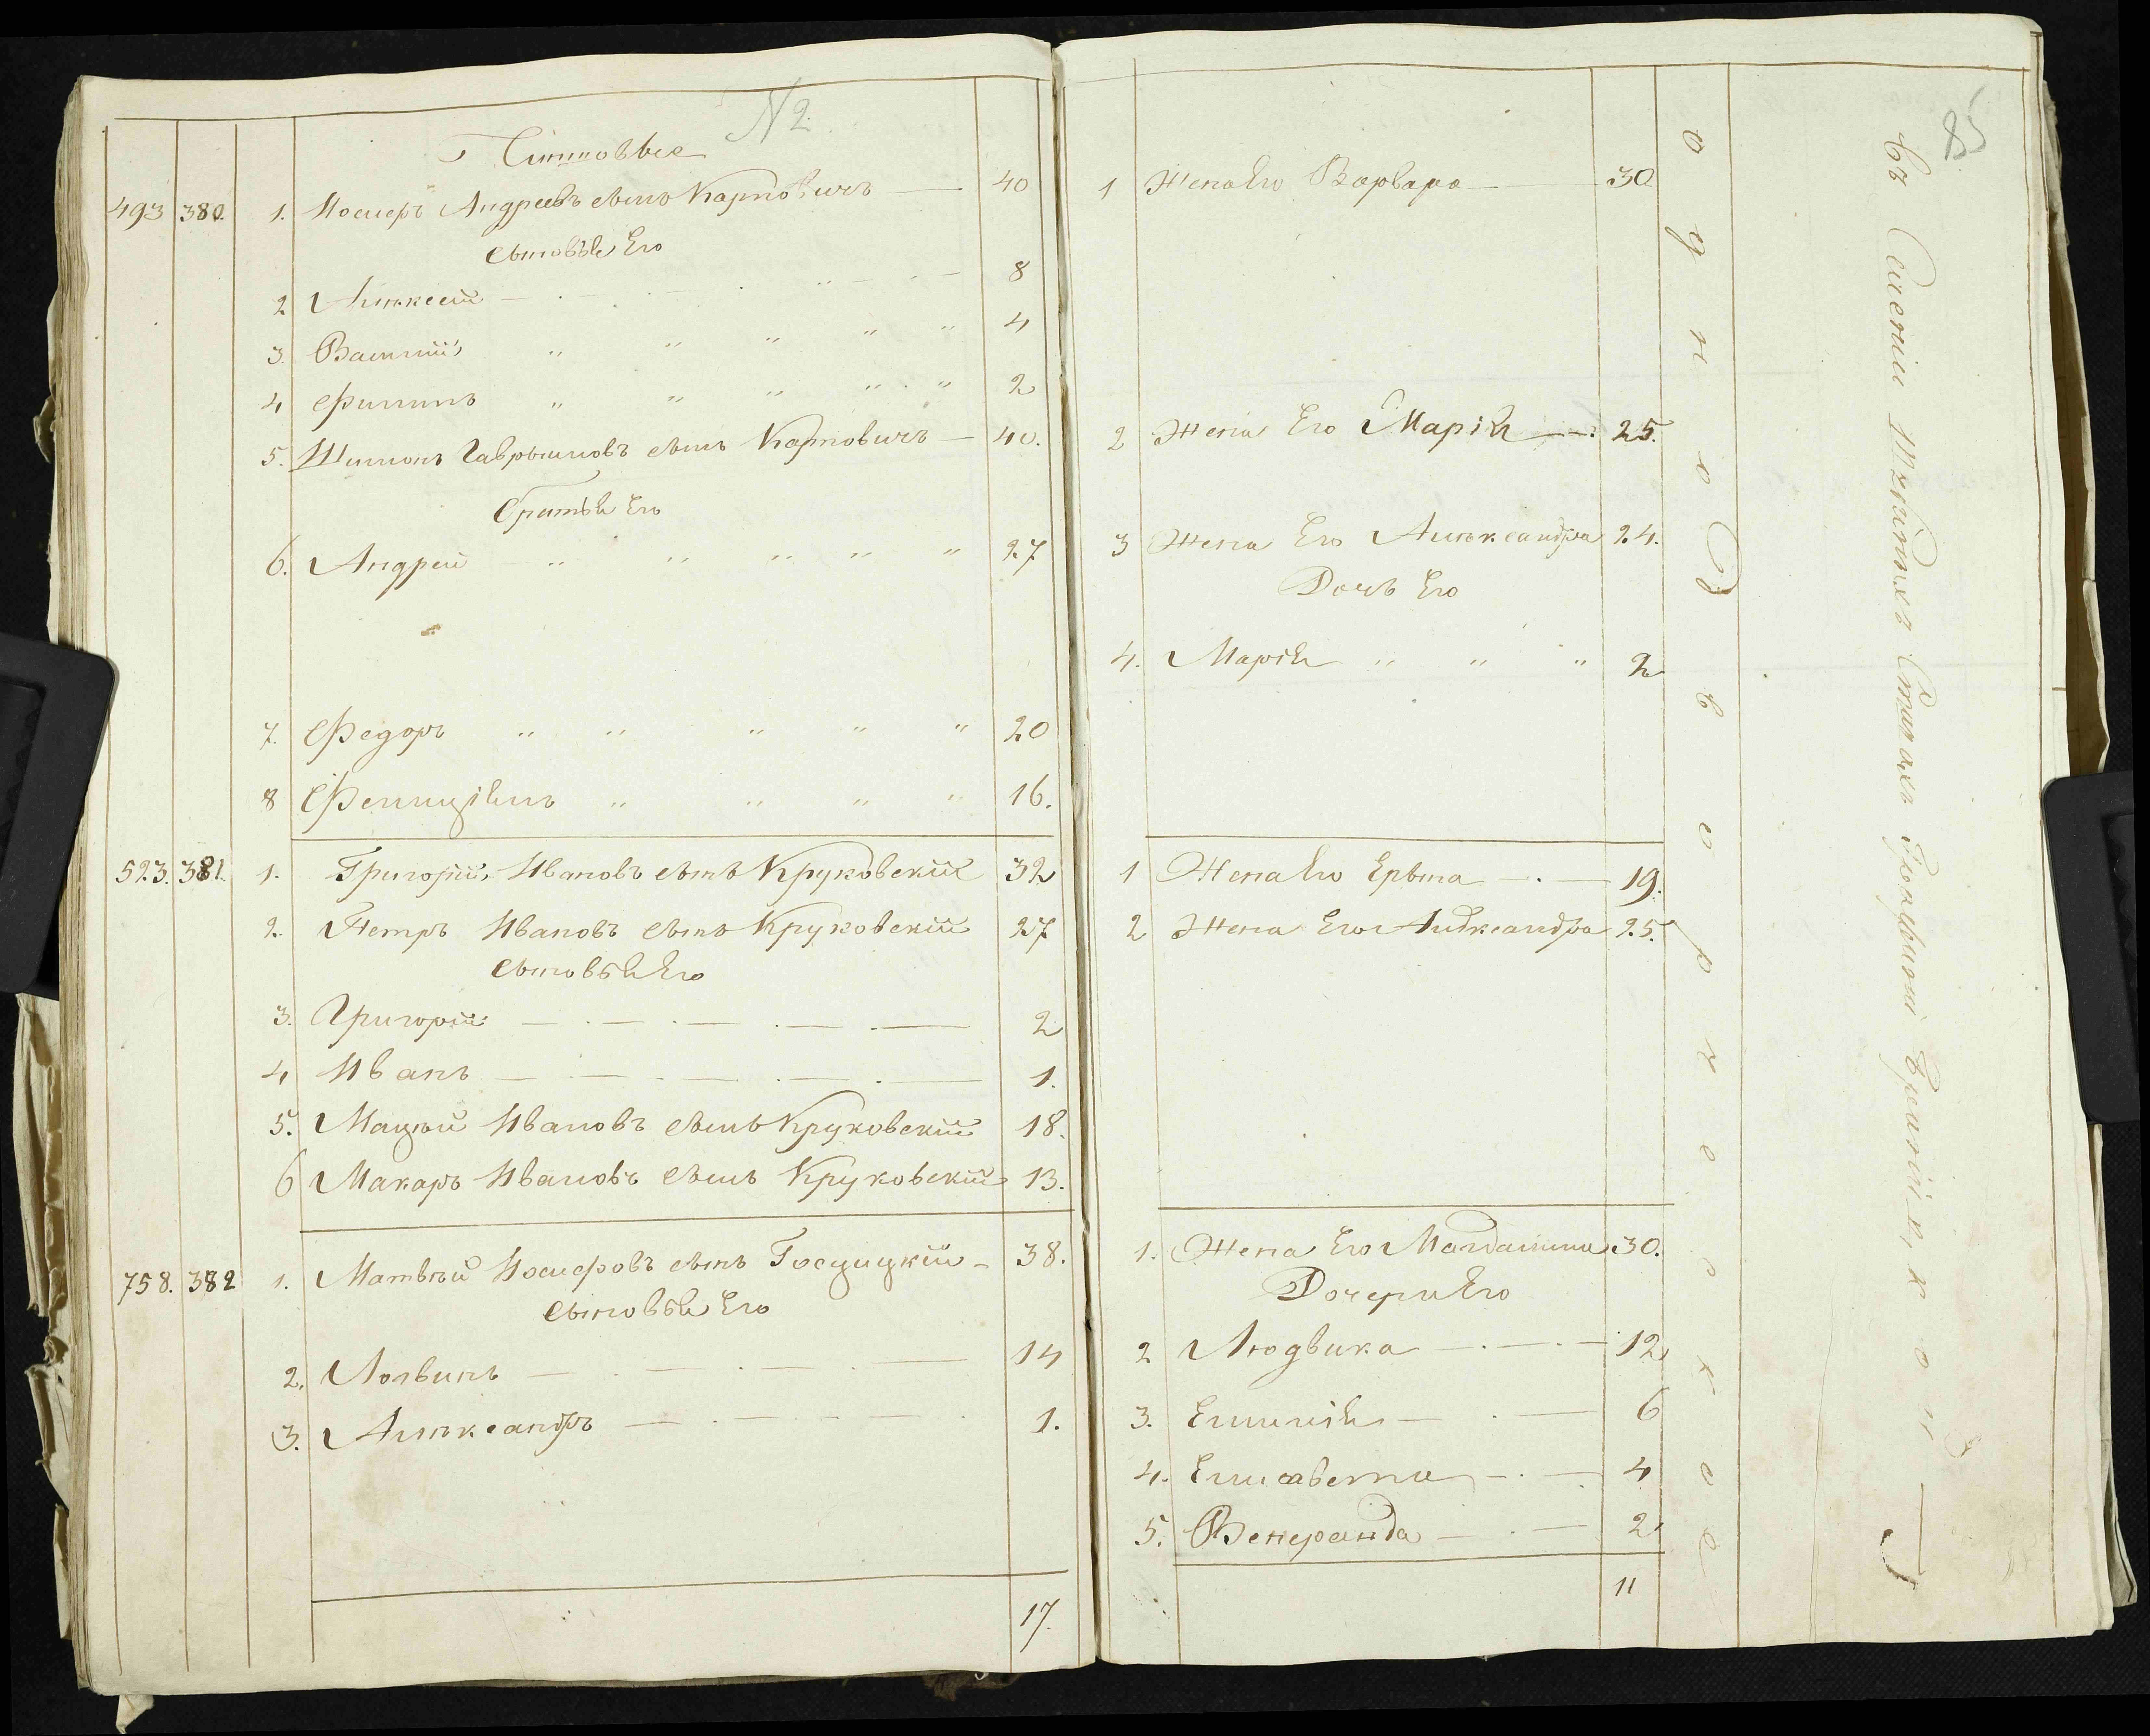 N 2.
85
493 380. 1. Іосифъ Андреевъ сынъ Карповичъ 40
сыновья Его
2 Алексей 8
3. Василій 4
4 Филипъ 2
5. Шимонъ Гаврыловъ сынъ Карповичъ 40.
братья Его
6. Андрей 27
7. Федоръ 20
8 Фелиціянъ 16.
523. 381. 1. Григорій Ивановъ сынъ Круковскій 32
2. Петръ Ивановъ сынъ Круковскій 27
сыновья Его
3. Григорій 2
4 Иванъ 1.
5. Мацей Ивановъ сынъ Круковскій 18.
6 Макаръ Ивановъ сынъ Круковскій 13.
758. 382 1. Матвей Іосифовъ сынъ Госцицкій 38.
сыновья Его
2. Логвинъ 14
3. Александръ 1.
17.
1 Жена Его Варвара 30
2 Жена Его Марія 25.
3 Жена Его Александра 24.
Дочь Его
4. Марія 2
1 Жена Его Ерына 19.
2 Жена Его Александра 25.
1. Жена Его Магдалина 30.
Дочери Его
2 Людвика 12
3. Емилія 6
4. Елисавета 4
5. Венеранда 2
11
однодворческое